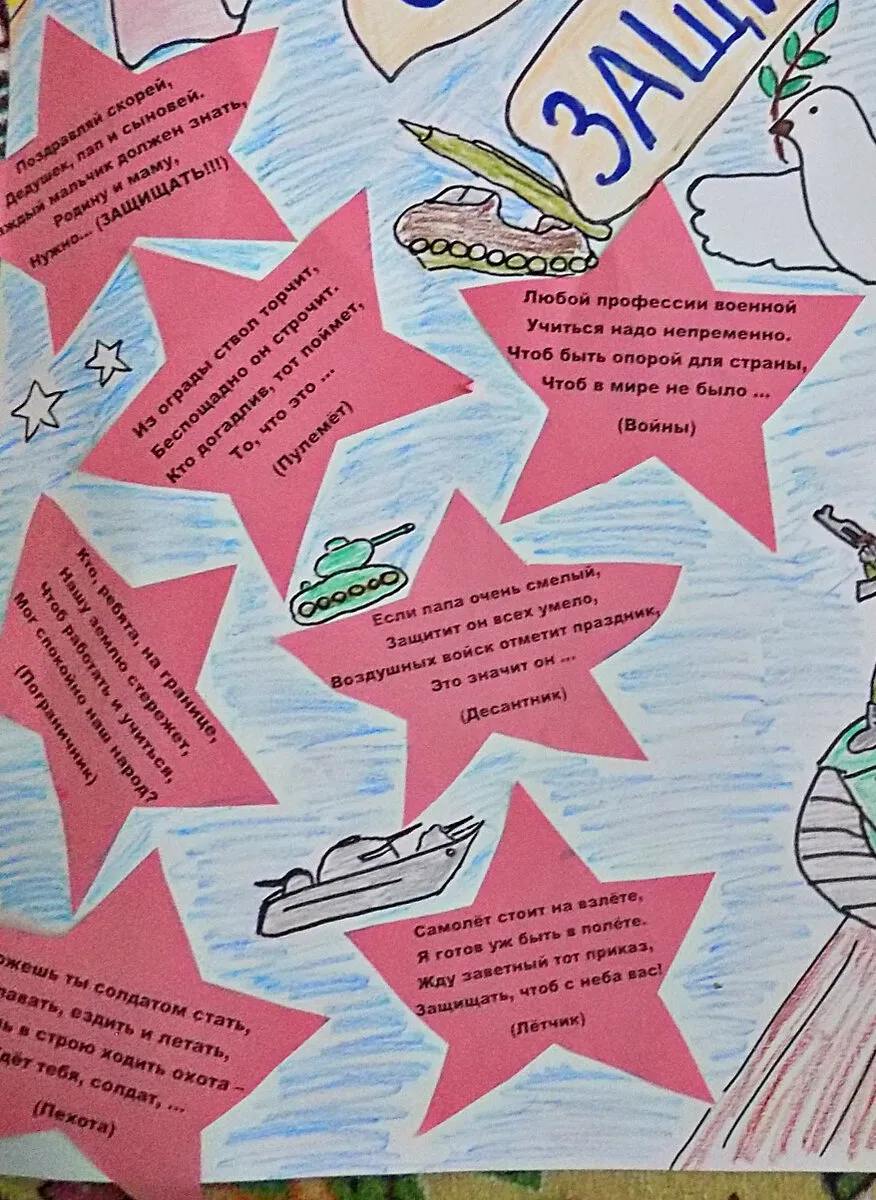 ЗАЩИ
Поздравляй скорей,
Дедушек, пап и сыновей.
мальчик должен знать,
Родину и маму,
Нужно... (ЗАЩИЩАТЬ!!!)
Из ограды ствол торчит,
Беспощадно он строчит.
Кто догадлив, тот поймет,
То, что это ...
(Пулемёт)
Любой профессии военной
Учиться надо непременно.
Чтоб быть опорой для страны,
Чтоб в мире не было ...
(Войны)
Кто, ребята, на границе,
Нашу землю стережет,
Чтоб работать и учиться,
Мог спокойно наш народ?
(Пограничник)
Если папа очень смелый,
Защитит он всех умело,
Воздушных войск отметит праздник,
Это значит он ...
(Десантник)
Самолёт стоит на взлёте,
Я готов уж быть в полёте.
Жду заветный тот приказ,
Защищать, чтоб с неба вас!
(Лётчик)
ты солдатом стать,
ездить и летать,
в строю ходить охота –
тебя, солдат, ...
(Пехота)